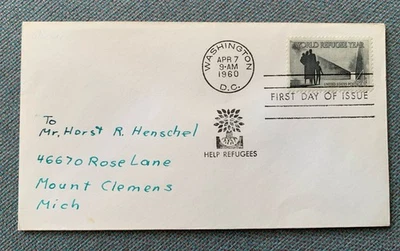 WASHINGTON
APR 7
9-AM
1960
D.C.
WORLD REFUGEE YEAR
FIRST DAY OF ISSUE
HELP REFUGEES
To
Mr. Horst R. Henschel
46670 Rose Lane
Mount Clemens
Mich